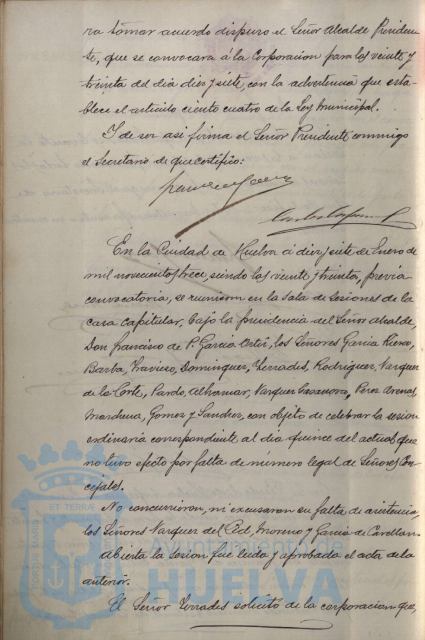 ra tomar acuerdo dispuso el Señor Alcalde Presiden-
te, que se convocara á la Corporacion para las veinte y
treinta del dia diez y siete, con la advertencia que esta-
blece el artículo ciento cuatro de la Ley Municipal.
Y de ser asi firma el Señor Presidente conmigo
el Secretario de que certifico:
En la Ciudad de Huelva á diez y siete de Enero de
mil novecientos trece, siendo las veinte y treinta, previa
convocatoria, se reunieron en la Sala de Sesiones de la
casa capitular, bajo la presidencia del Señor Alcalde,
Don Francisco de P. García Ortiz, los Señores García
Barba, Traviero, Dominguez, Terrades, Rodriguez, Vazquez
de la Corte, Pardo, Alhamar, Vazquez Casanova, Perez Arenas,
Marchena, Gomez y Sanchez, con objeto de celebrar la sesion
ordinaria correspondiente al dia quince del actual, que
no tuvo efecto por falta de número legal de Señores Con-
cejales.
No concurrieron, ni excusaron su falta de asistencia,
los Señores Vazquez del Cid, Moreno y García de Cavellan.
Abierta la sesion fué leida y aprobada el acta de la
anterior.
El Señor Terrades solicitó de la corporacion que,
PORTUS MARIS ET TERRAE
HUELVA